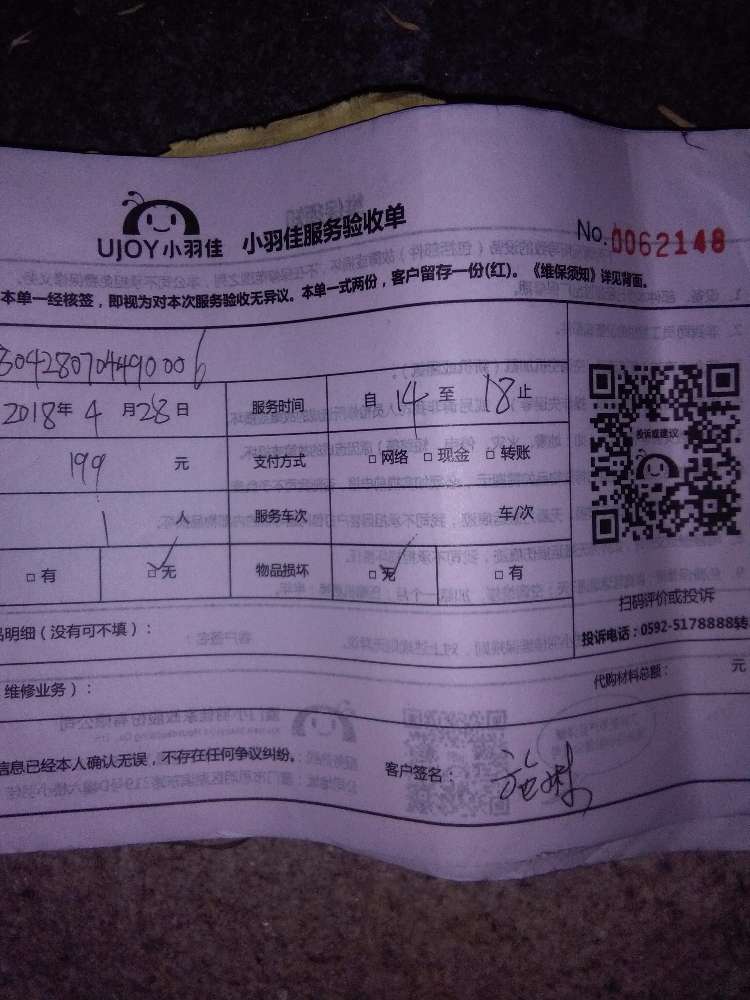 UJOY小羽佳 小羽佳服务验收单 No.0062148
本单一经核签，即视为对本次服务验收无异议。本单一式两份，客户留存一份(红)。《维保须知》详见背面。
3042807044900006
2018年4月28日 服务时间 自14至18止
199元 支付方式 □网络 □现金 □转账
投诉或建议
1人 服务车次 车/次
□有 □无 物品损坏 □无 □有
扫码评价或投诉
明细（没有可不填）：
投诉电话：0592-5178888转
维修业务）： 代购材料总额： 元
信息已经本人确认无误，不存在任何争议纠纷。 客户签名：